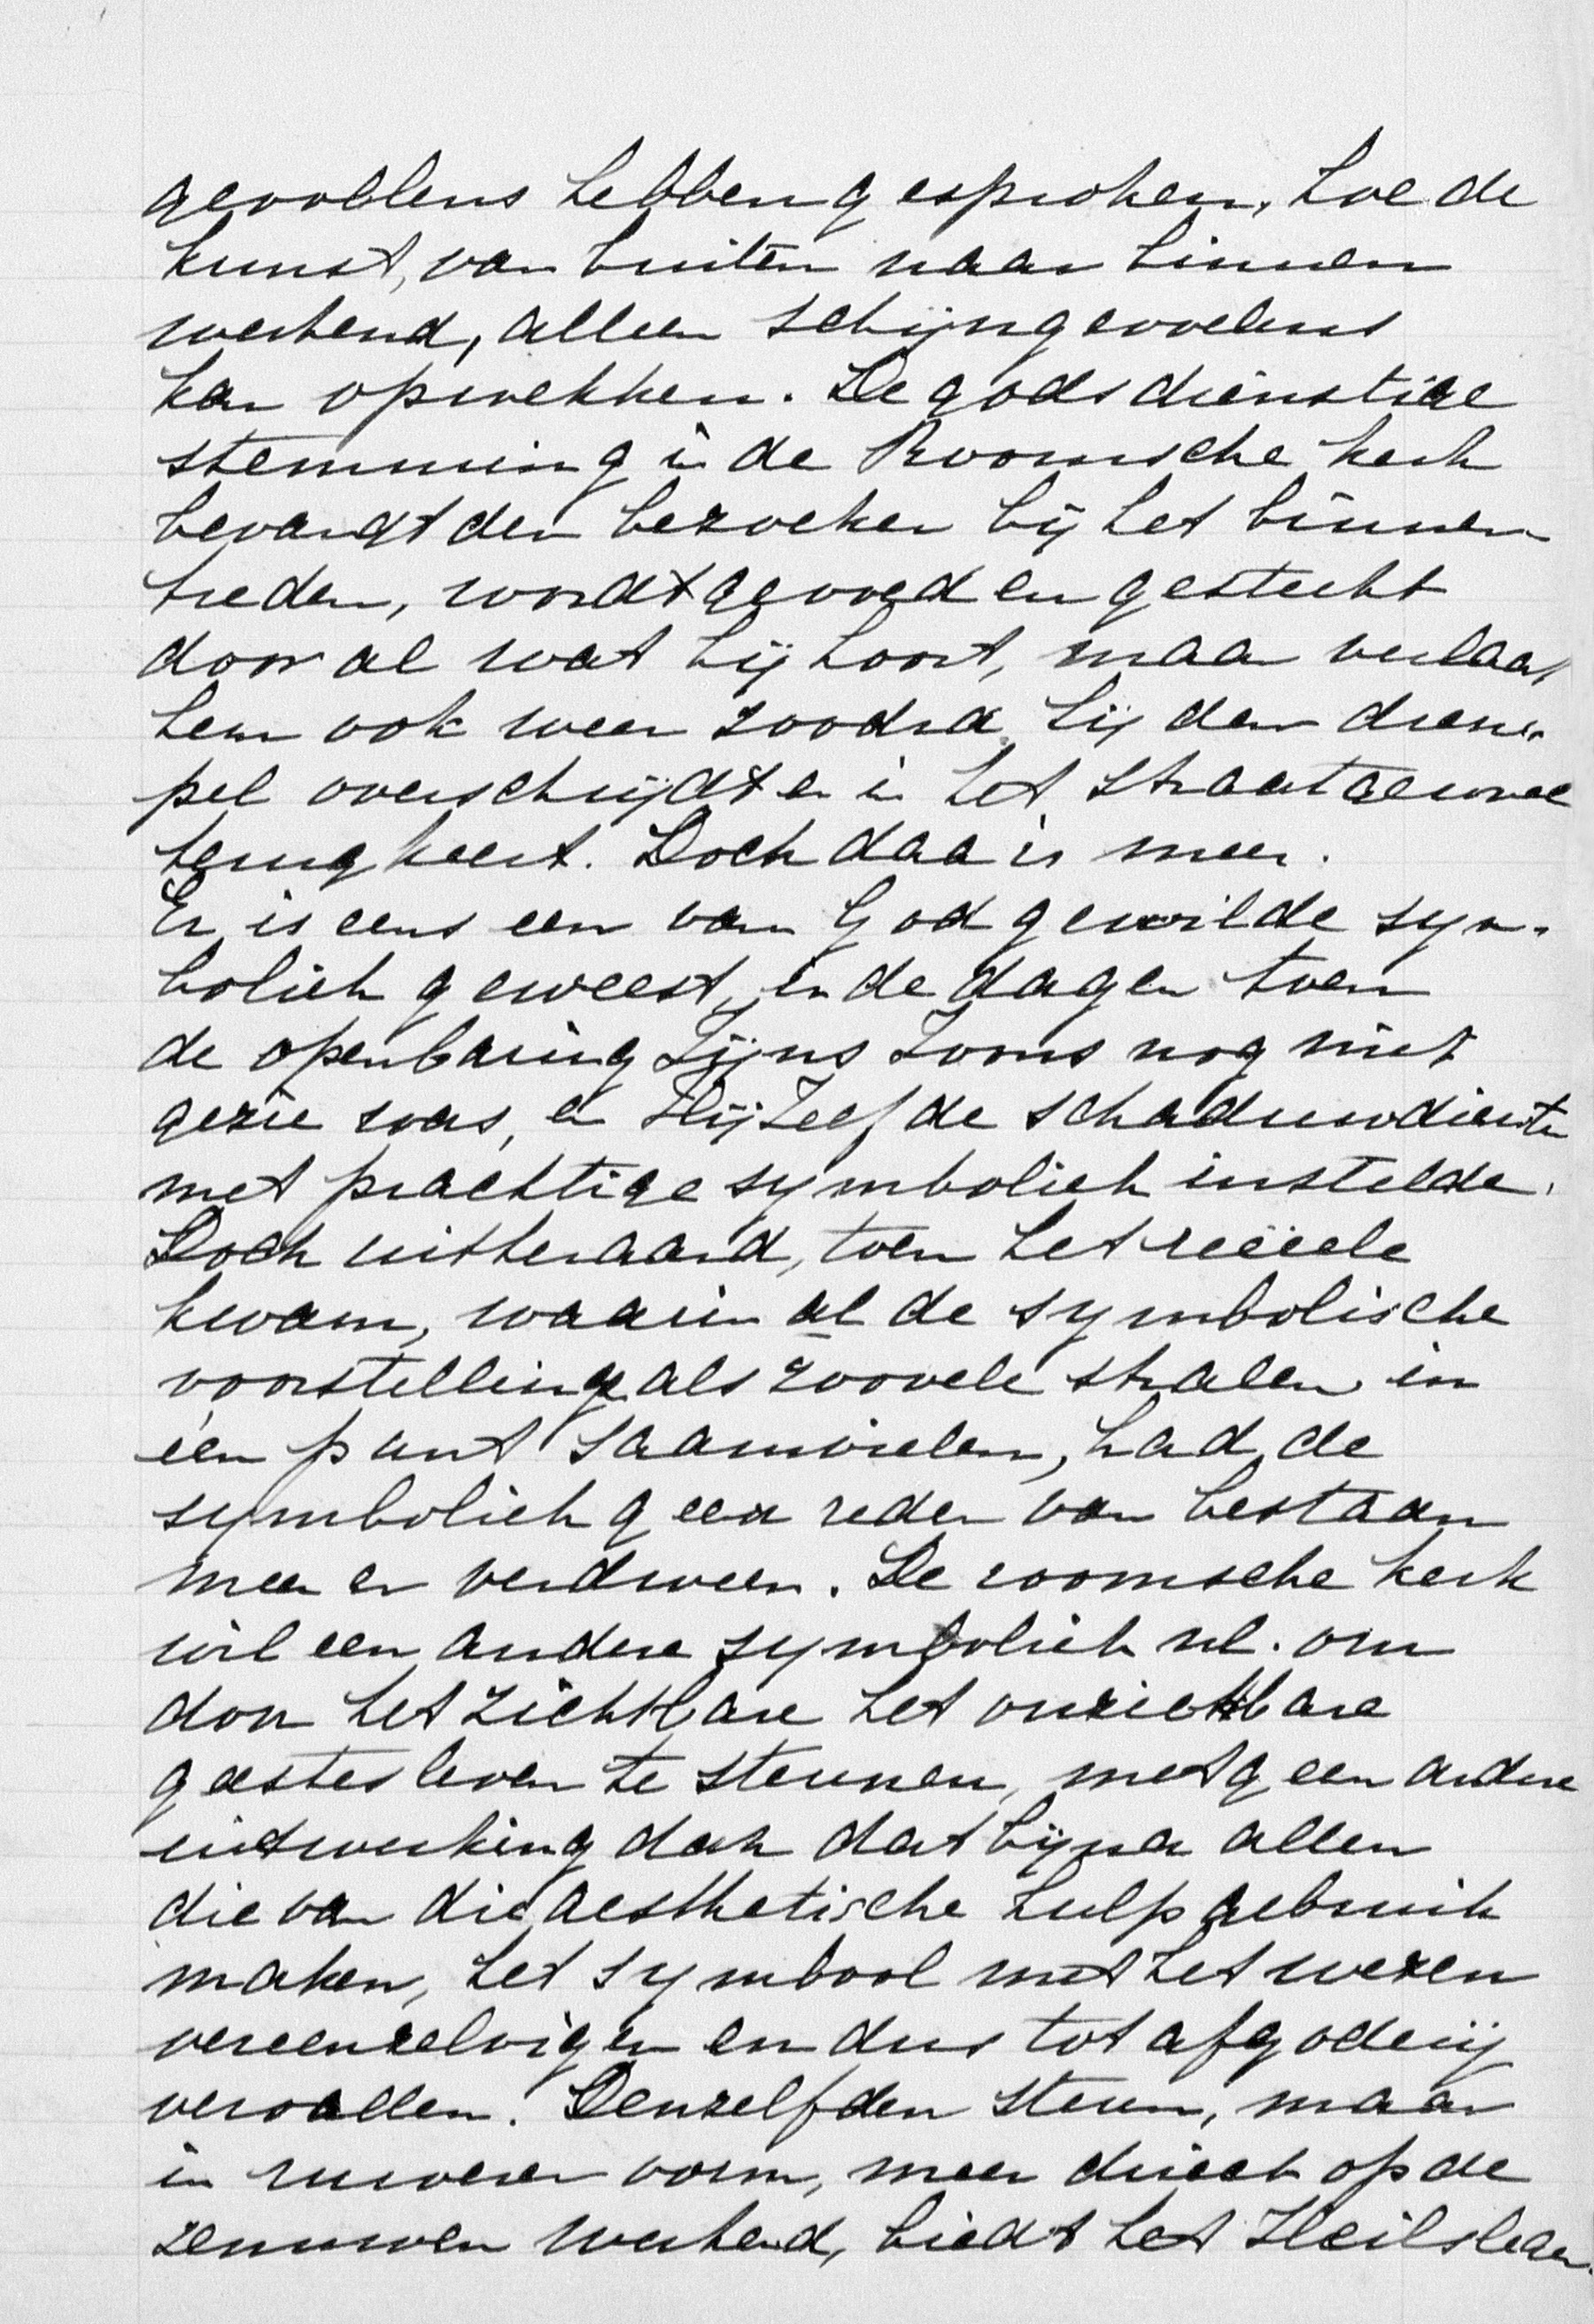 gevoelens hebben gesproken, hoe de
kunst, van buiten naar binnen
werkend, alleen schijngevoelens
kan opwekken. De godsdienstige
stemming in de Roomsche kerk
bevangt den bezoeker bij het binnen
treden, wordt gevoed en gesterkt
door al wat hij hoort, maar verlaat
hem ook weer zoodra hij den drem-
pel overschrijdt en in het straatgewoel
terugkeert. Doch daar is meer.
Er is eens een van God gewilde sym-
boliek geweest, in de dagen toen
de openbaring Zijns Zoons nog niet
gezie was, en Hij Zelf de schaduwdienst
met prachtige symboliek instelde.
Doch uitteraard, toen het reëele
kwam, waarin al de symbolische
voorstelling als zoovele stralen in
één punt saamvielen, had de
symboliek geen reden van bestaan
meer en verdween. De roomsche kerk
wil een andere symboliek nl. om
door het zichtbare het onzichtbare
geestesleven te steunen, met geen andere
uitwerking dan dat bijna allen
die van die aesthetische hulp gebruik
maken, het symbool met het wezen
vereenzelvigen en dus tot afgoderij
vervallen. Denzelfden steun, maar
in ruweren vorm, meer direct op de
zenuwen werkend, biedt het Heilsleger.